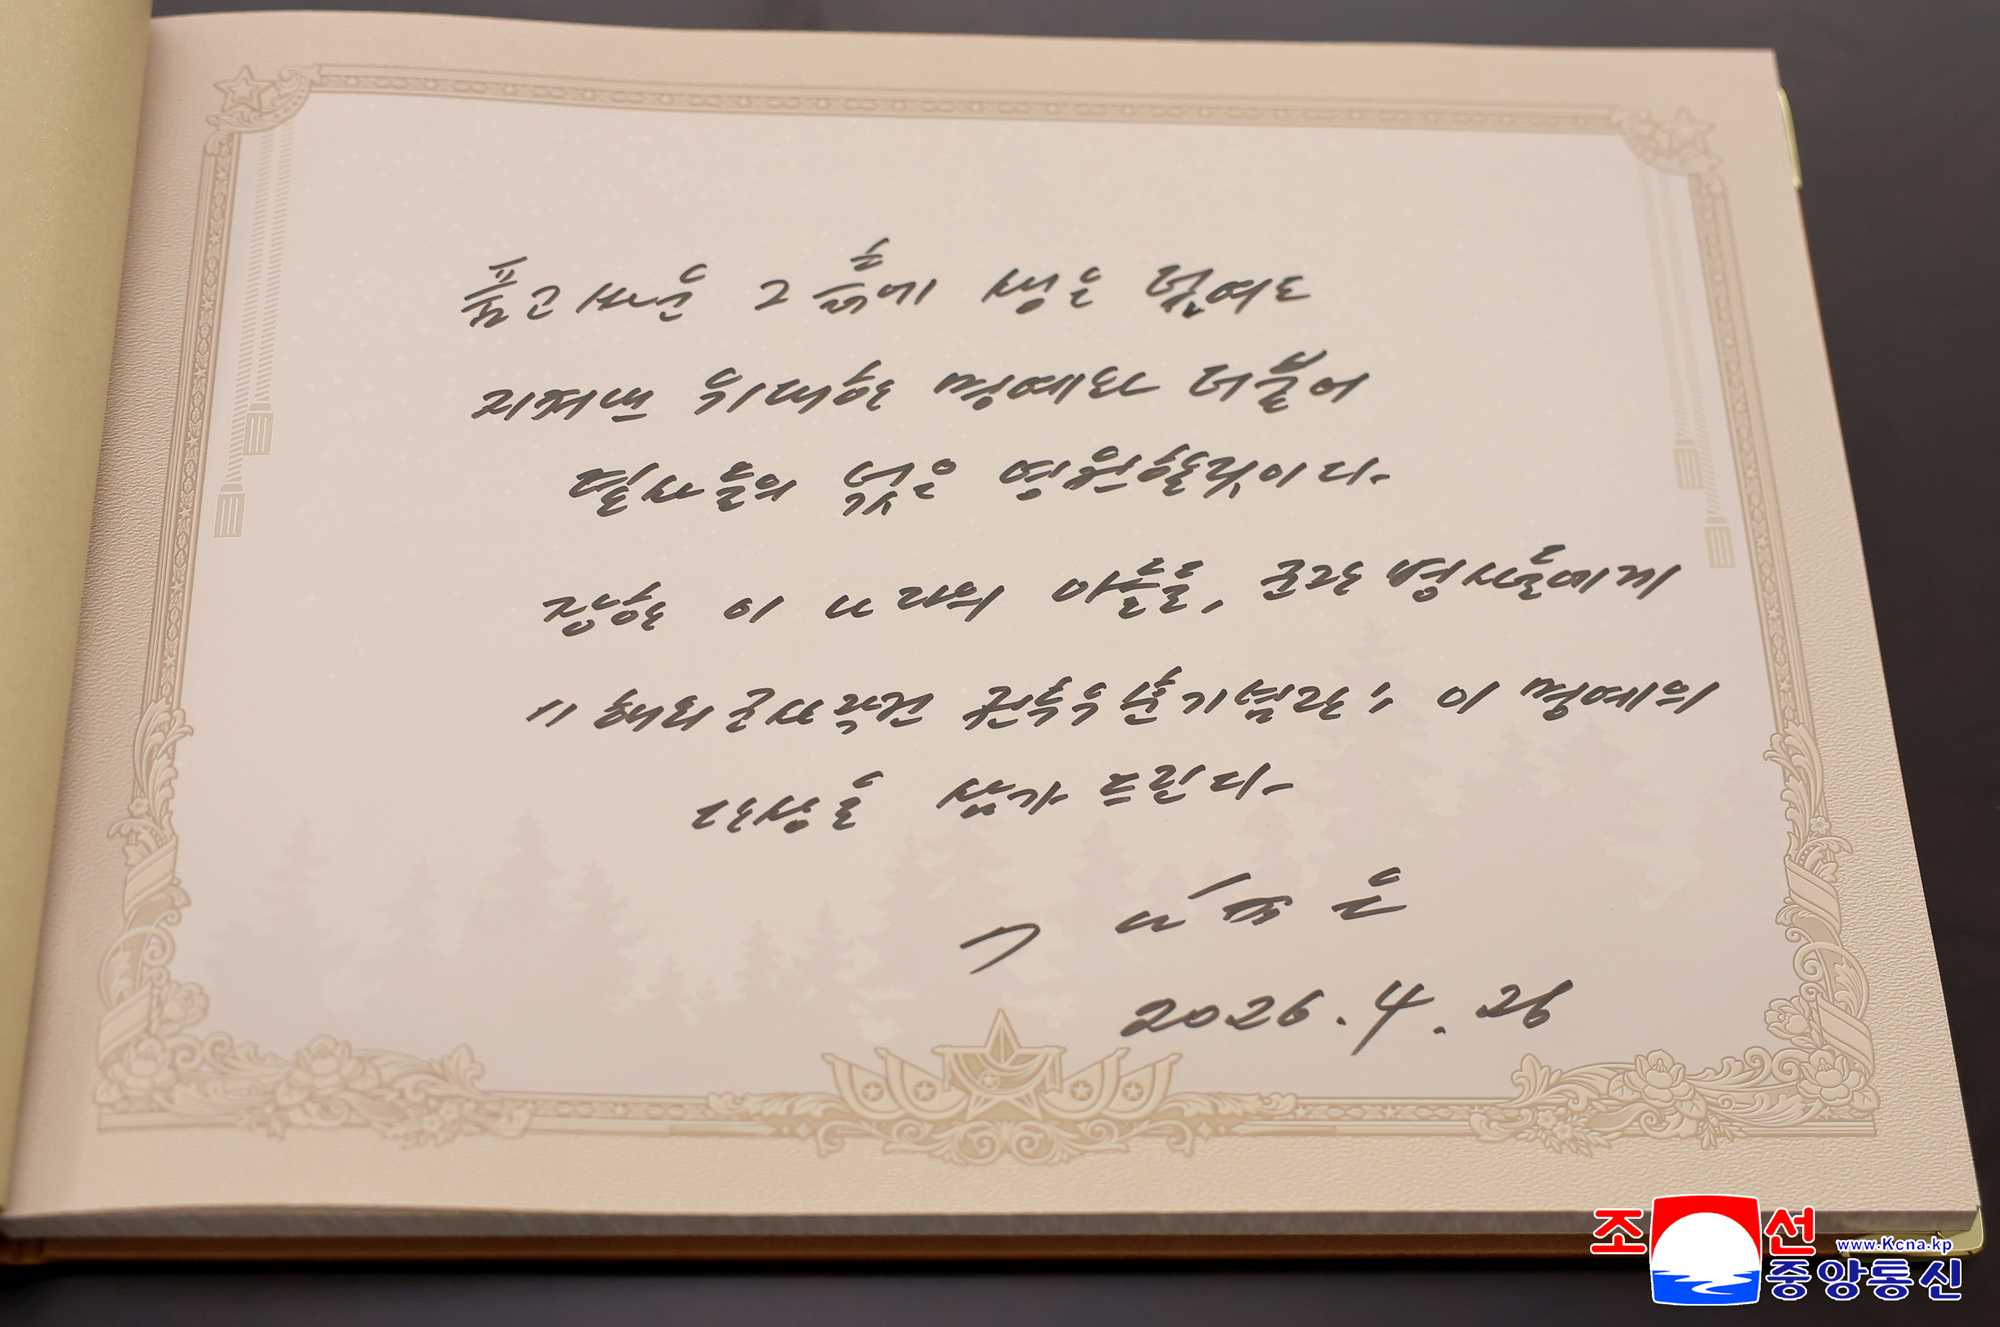 품고싸운 그 흙에 생은 덮여도
지켜낸 위대한 명예와 더불어
렬사들의 넋은 영원할것이다.
장한 이 나라의 아들들, 군관 병사들에게
"해외군사작전 전투위훈기념관" 이 명예의
단상을 삼가 드린다.
김정은
2026. 4. 26
조선
www.Kcna.kp
중앙통신